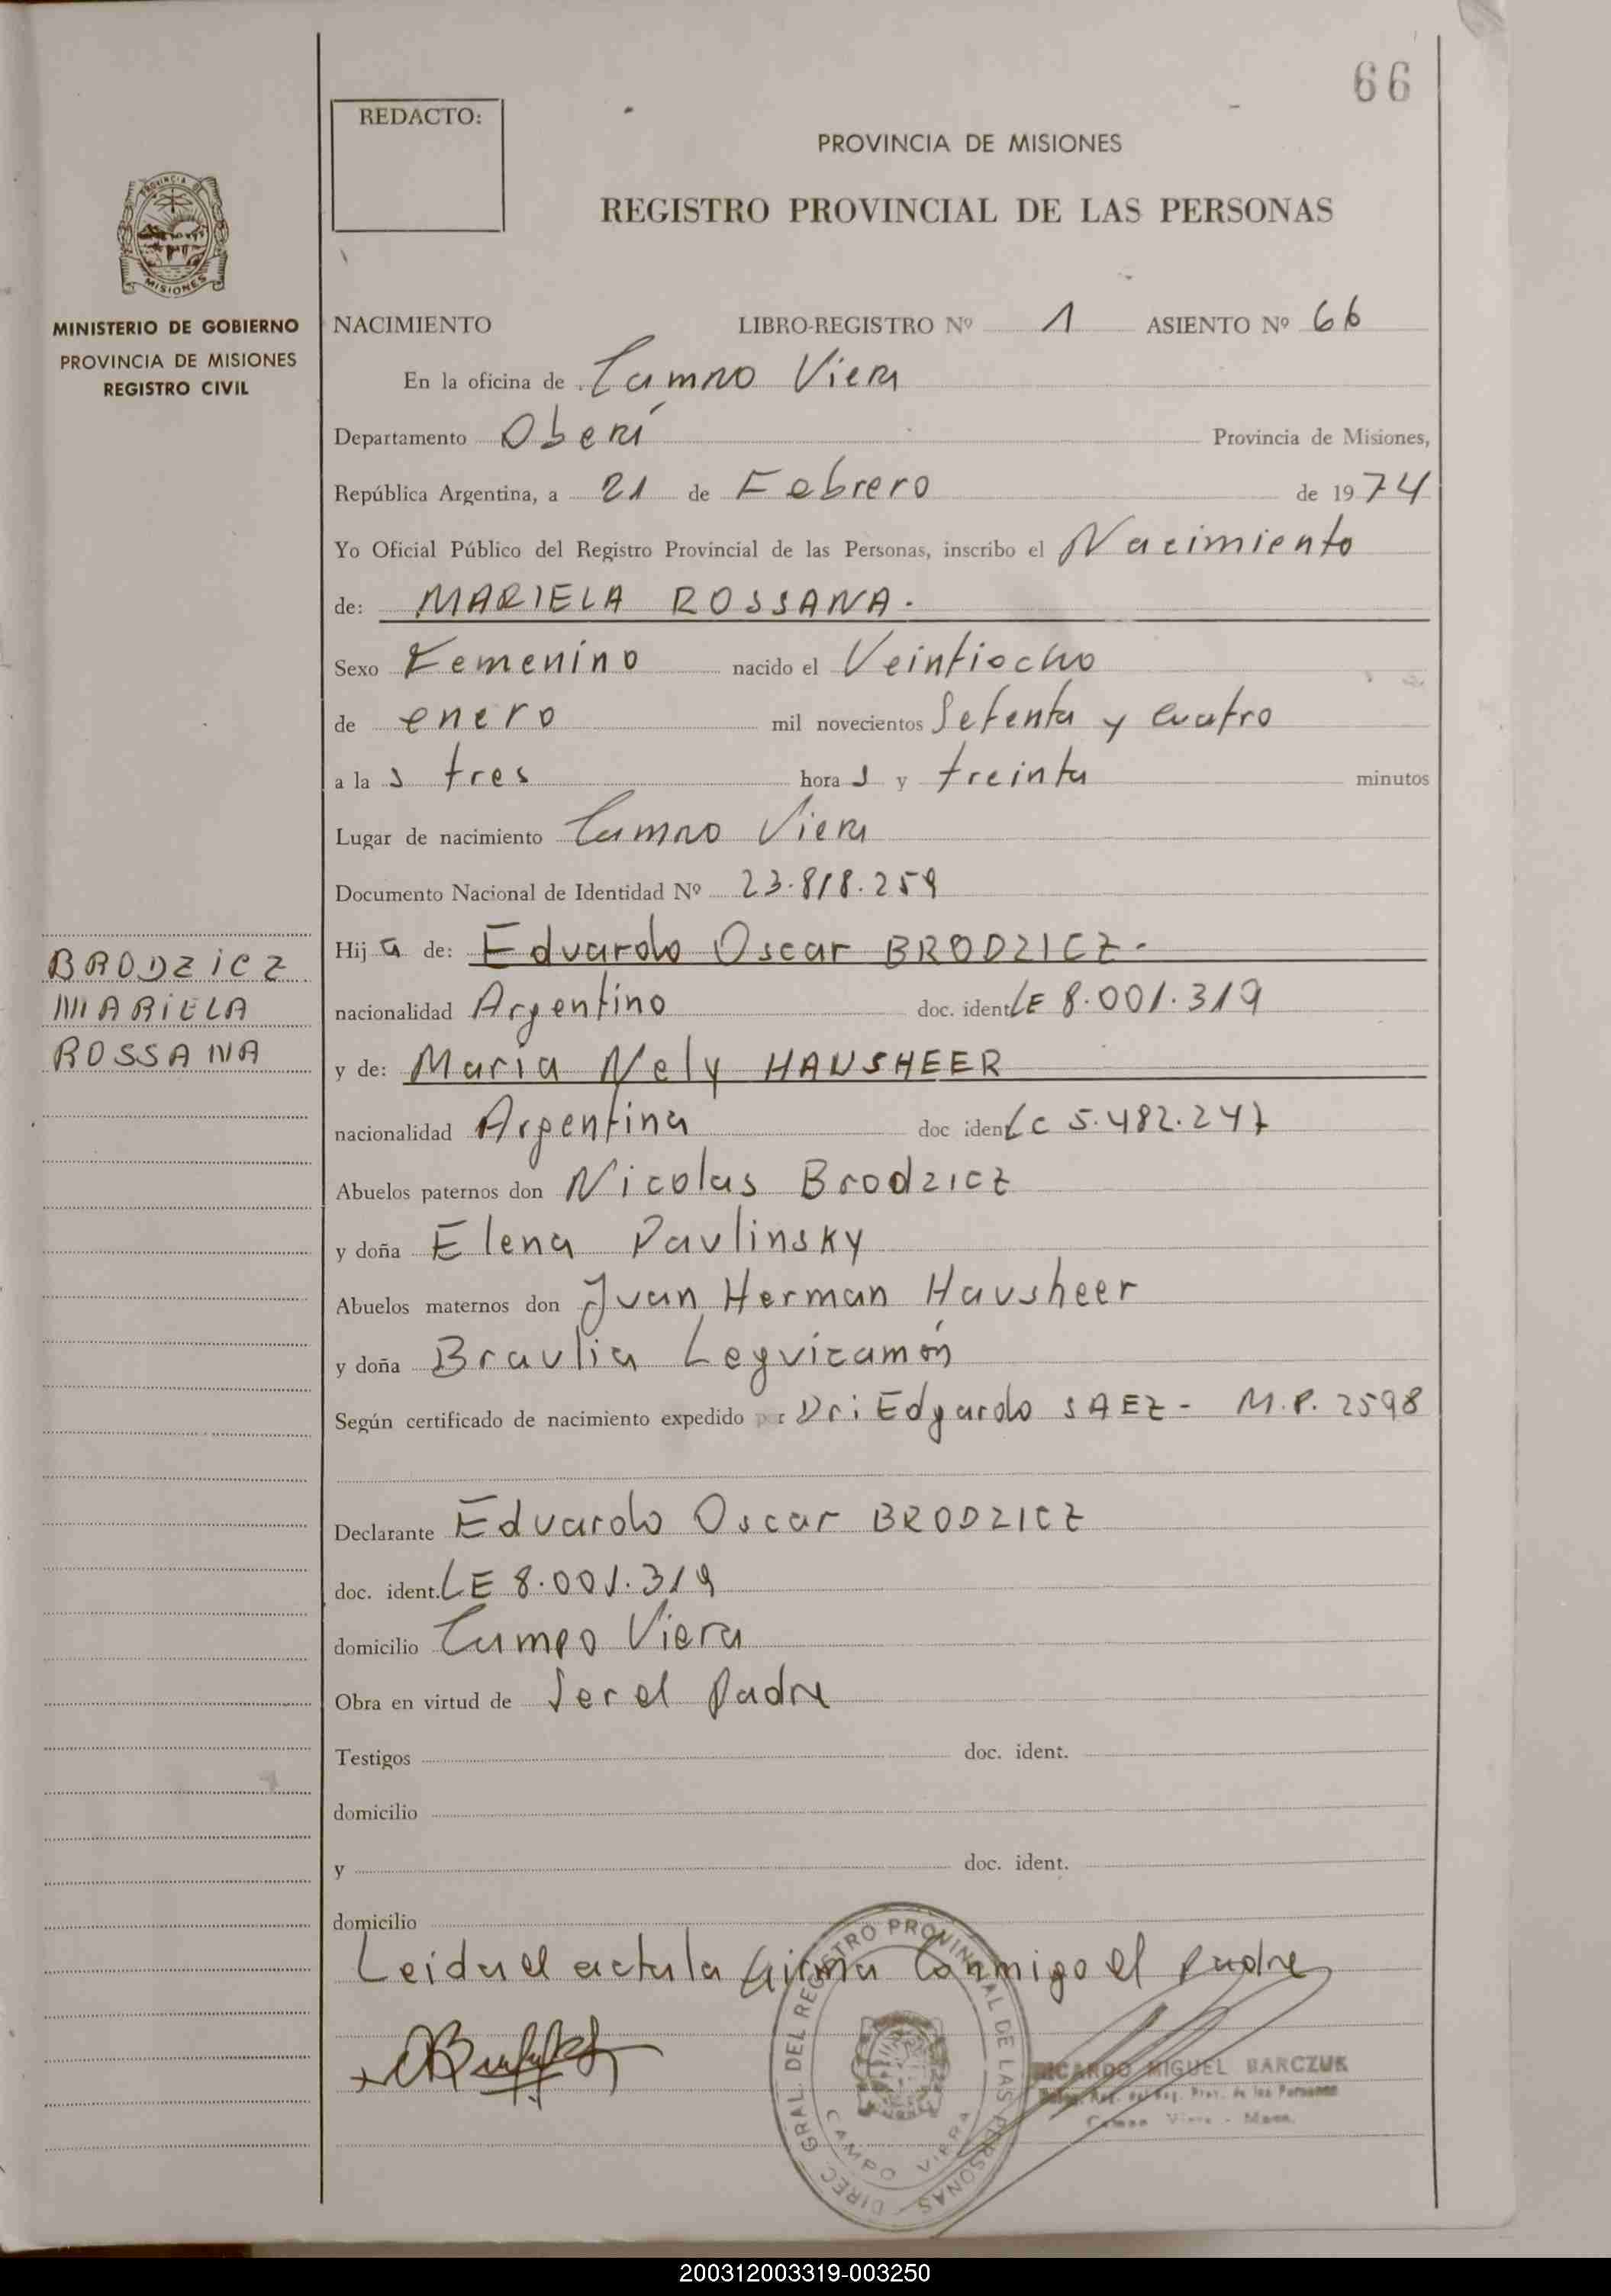 66
REDACTO:
PROVINCIA DE MISIONES
REGISTRO PROVINCIAL DE LAS PERSONAS
PROVINCIA DE
MISIONES
MINISTERIO DE GOBIERNO
PROVINCIA DE MISIONES
REGISTRO CIVIL
NACIMIENTO LIBRO-REGISTRO Nº 1 ASIENTO Nº 66
En la oficina de Campo Viera
Departamento Oberá Provincia de Misiones,
República Argentina, a 21 de Febrero de 1974
Yo Oficial Público del Registro Provincial de las Personas, inscribo el Nacimiento
de: MARIELA ROSSANA.
Sexo Femenino nacido el Veintiocho
de enero mil novecientos Setenta y cuatro
a la s tres hora s y treinta minutos
Lugar de nacimiento Campo Viera
Documento Nacional de Identidad Nº 23.818.259
Hij a de: Eduardo Oscar BRODZICZ-
BRODZICZ
MARIELA
ROSSANA
nacionalidad Argentino doc. ident LE 8.001.319
y de: Maria Nely HAUSHEER
nacionalidad Argentina doc iden LC 5.482.247
Abuelos paternos don Nicolas Brodzicz
y doña Elena Pavlinsky
Abuelos maternos don Juan Herman Hausheer
y doña Braulia Leguizamón
Según certificado de nacimiento expedido por Dr: Edgardo SAEZ - M.P. 2598
Declarante Eduardo Oscar BRODZICZ
doc. ident. LE 8.001.319
domicilio Campo Viera
Obra en virtud de Ser el Padre
Testigos doc. ident.
domicilio
y doc. ident.
domicilio
Leida el acta la firma Conmigo el padre
DIREC. GRAL. DEL REGISTRO PROVINCIAL DE LAS PERSONAS
CAMPO VIERA
RICARDO MIGUEL BARCZUK
Reg. Prov. de las Personas
Campo Viera - Mnes.
200312003319-003250